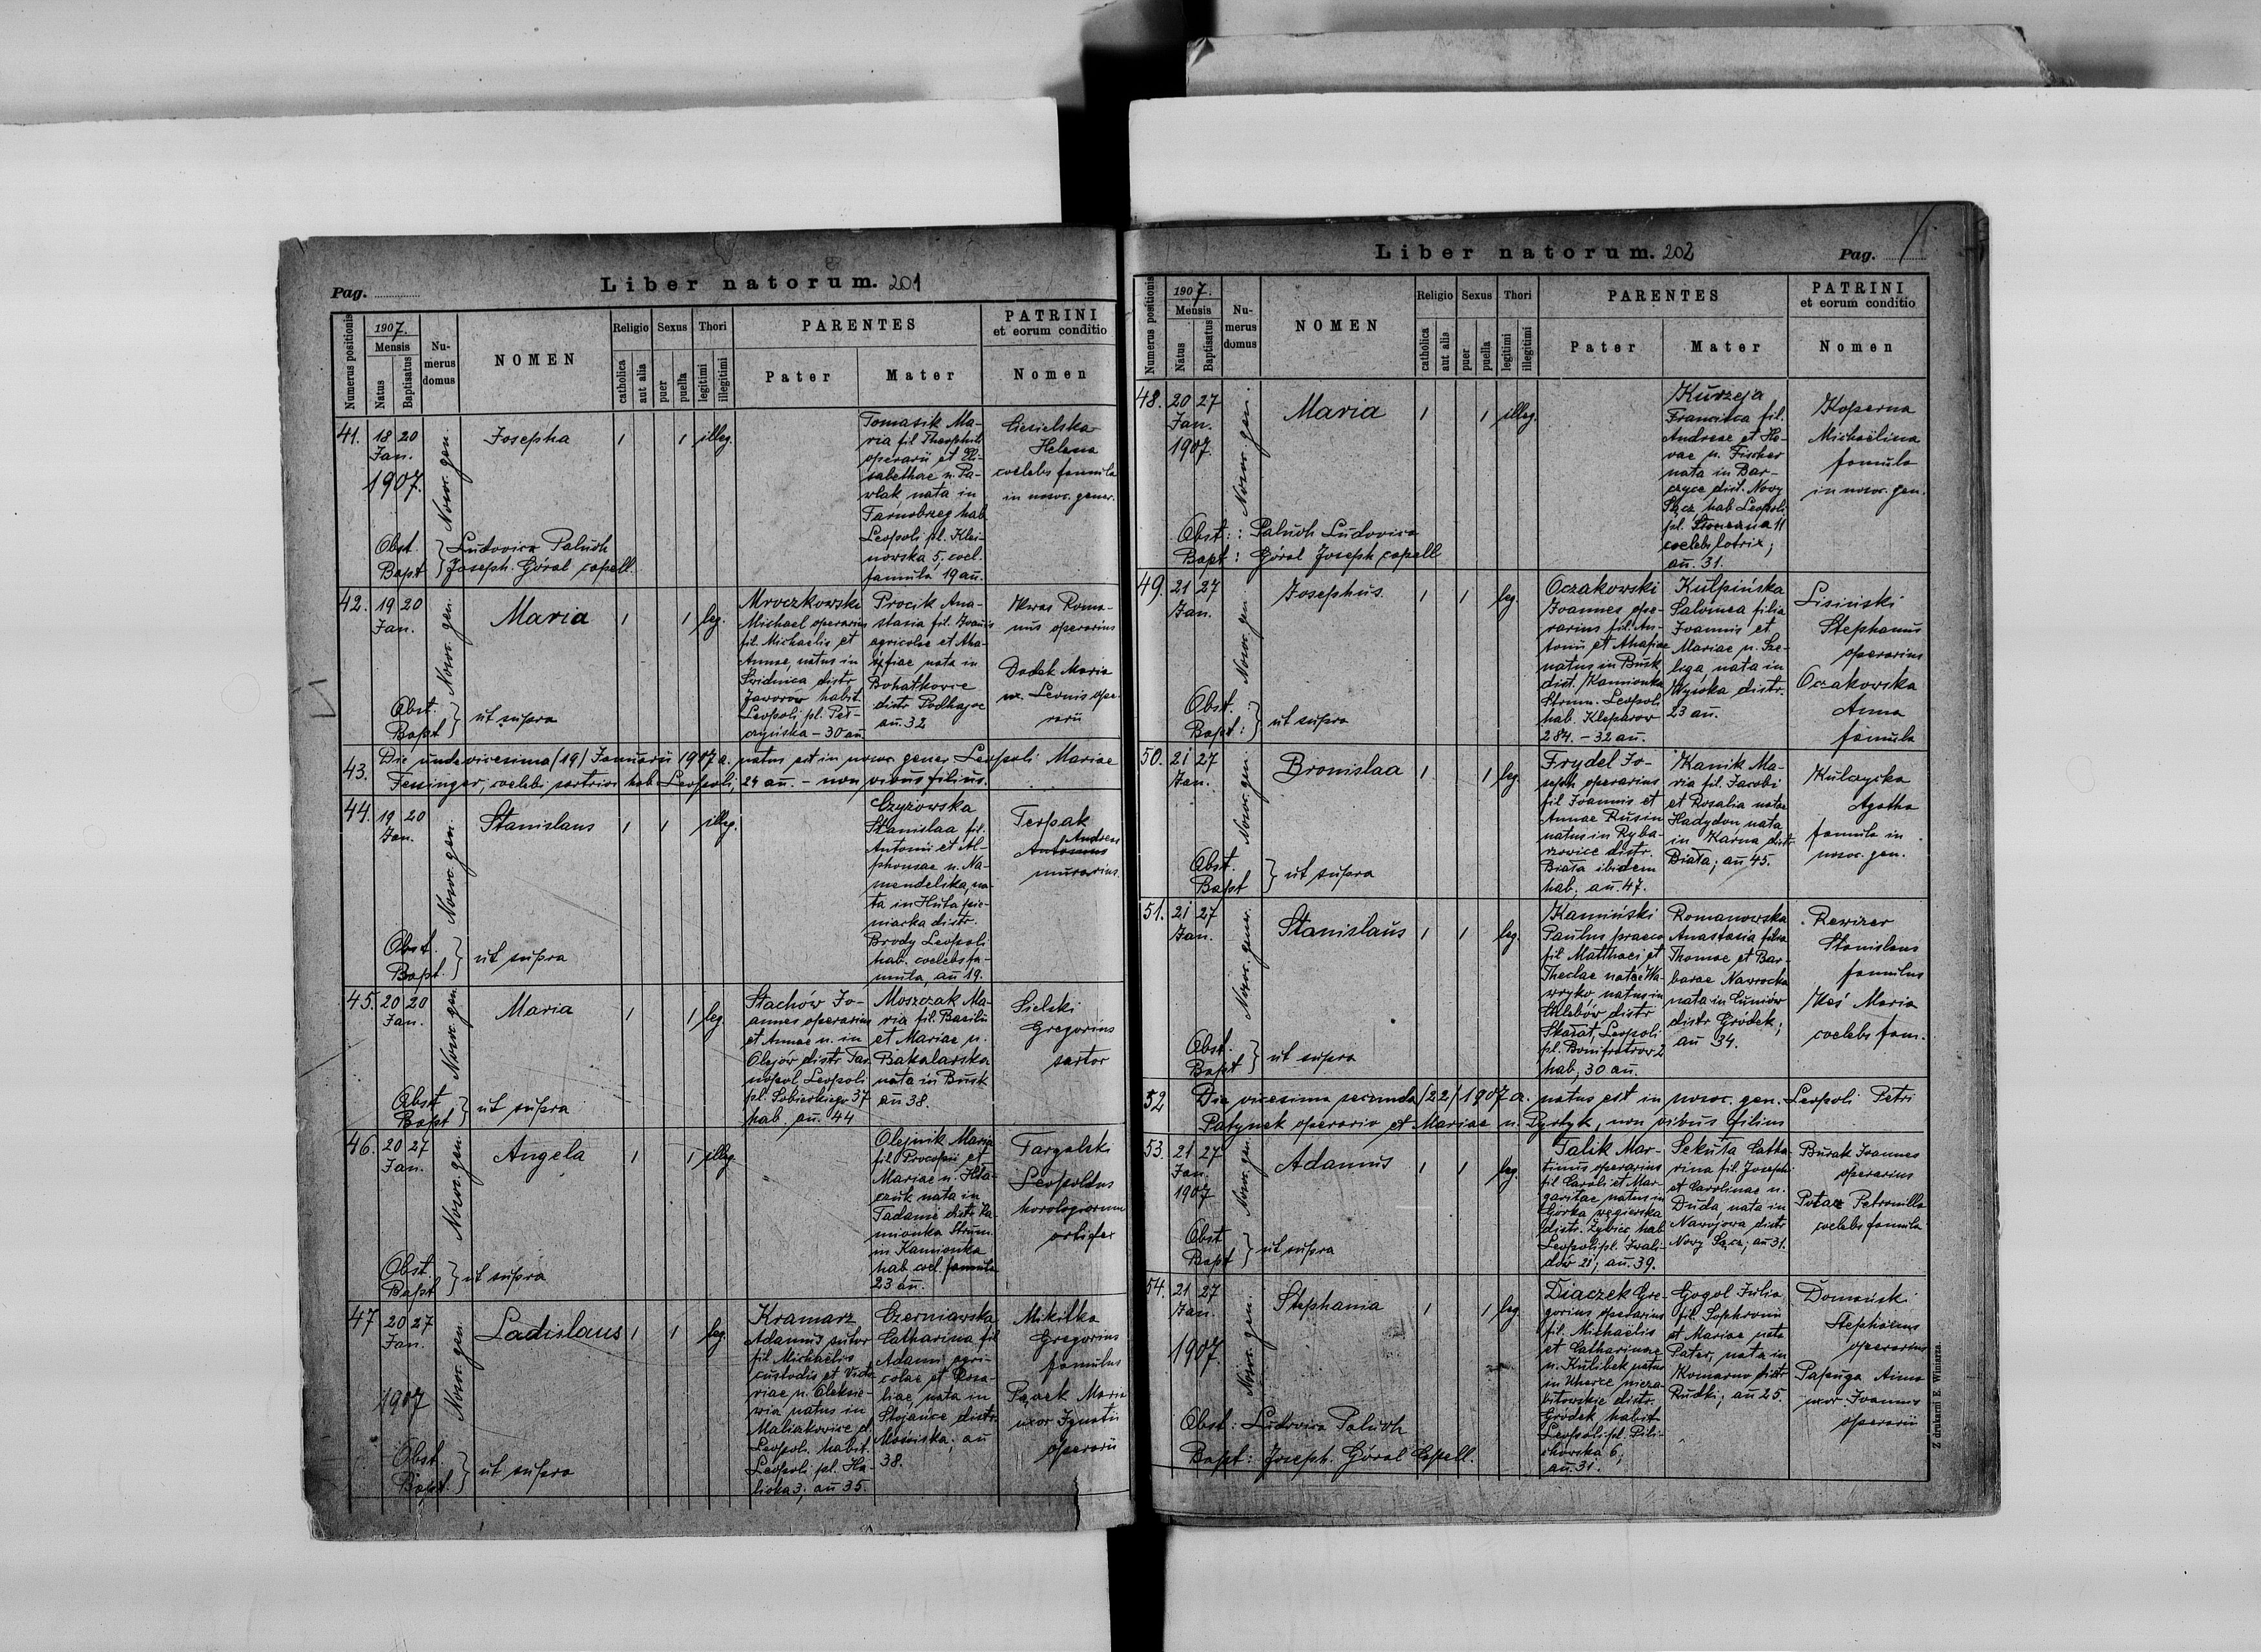 Pag.
Liber natorum. 201
Numerus positionis
1907.
Mensis
Natus
Baptisatus
Numerus domus
NOMEN
Religio
catholica
aut alia
Sexus
puer
puella
Thori
legitimi
illegitimi
PARENTES
Pater
Mater
PATRINI
et eorum conditio
Nomen
41.
18 20
Jan.
1907.
Nosoc. gen.
Josepha
1
1
illeg.
Tomasik Ma-
ria fil Theophili
operarii et Eli-
sabethae n. Pa-
wlak, nata in
Tarnobrzeg hab
Leopoli pl. Klei-
nowska 5, coel.
famula 19 an.
Ciesielska
Helena
coelebs famula
in nosoc. gener.
Obst.
Bapt
Ludovica Paluch
Joseph. Góral capell.
42.
19 20
Jan.
Nosoc. gen.
Maria
1
1
leg.
Mroczkowski
Michael operarius
fil. Michaelis et
Annae, natus in
Świdnica distr
Jaworow habit
Leopoli pl. Peł-
czyńska - 30 an.
Procik Ana-
stasia fil. Joannis
agricolae et Ana-
stasiae nata in
Bohatkovce
distr Podhajce
an. 32
Roma-
nus operarius
Dudek Maria
ux. Leonis ope-
rarii
Obst.
Bapt
ut supra
43.
Die undevicesima (19) Januarii 1907 a. natus est in nosoc. gener Leopoli Mariae
Fessinger, coelebi sartrici hab Leopoli, 24 an. - non vivus filius.
44.
19 20
Jan.
Nosoc. gen.
Stanislaus
1
1
illeg.
Czyżowska
Stanislaa fil.
Antonii et Al-
phonsae n. Na-
mendelska, na-
ta in Huta pie-
niacka distr.
Brody Leopoli
hab. coelebs fa-
mula, an 19.
Terpak
Andreas
murarius.
Obst.
Bapt.
ut supra
45.
20 20
Jan.
Nosoc. gen
Maria
1
1
leg.
Stachów Jo-
annes operarius
et Annae n. in
Olejów distr Tar
nopol, Leopoli
pl. Sobieskiego 37
hab. an. 44
Moszczak Ma-
ria fil. Basilii
et Mariae n.
Bakalarska
nata in Busk
an 38.
Sielski
Gregorius
sartor
Obst
Bapt
ut supra
46.
20 27
Jan.
Nosoc. gen.
Angela
1
1
illeg.
Olejnik Maria
fil. Procopii et
Mariae n. Hla-
czuk nata in
Tadanie distr Ka
mionka Strum.
in Kamionka
hab coel. famula
23 an.
Targalski
Leopoldus
horologiorum
artifex
Obst.
Bapt
ut supra
47
20 27
Jan.
1907
Nosoc. gen.
Ladislaus
1
1
leg.
Kramarz
Adamus sutor
fil Michaëlis
custodis et Victo
riae n. Oleksie-
wia natus in
Maliczkowice d.
Leopoli habit.
Leopoli pl. Ha-
licka 3; an 35.
Czerniawska
Catharina fil
Adami agri-
colae et Rosa-
liae, nata in
Stojańce distr.
Mościska; an
38.
Mikitka
Gregorius
famulus
Maria
uxor Ignatii
operarii
Obst.
Bapt.
ut supra
Liber natorum. 202
Pag.
Numerus positionis
1907.
Mensis
Natus
Baptisatus
Numerus domus
NOMEN
Religio
catholica
aut alia
Sexus
puer
puella
Thori
legitimi
illegitimi
PARENTES
Pater
Mater
PATRINI
et eorum conditio
Nomen
48.
20 27
Jan.
1907.
Nosoc. gen.
Maria
1
1
illeg.
Kurzeja
Francisca fil.
Andreae et He-
vae n. Fischer
nata in Bar-
czyce dist. Nowy
Sącz, hab Leopoli
pl. Słoneczna 11
coelebs lotrix;
an. 31.
Koperna
Michaëlina
famula
in nosoc. gen.
Obst.: Paluch Ludovica
Bapt: Góral Joseph capell
49.
21 27
Jan.
Nosoc. gen.
Josephus
1
1
leg.
Oczakowski
Joannes ope-
rarius fil. An-
tonii et Anafiae
natus in Busk
dist. Kamionka
Strum. Leopoli
hab. Kleparow
284. - 32 an.
Kulpińska
Salomea filia
Joannis et
Mariae n. Sze-
liga, nata in
Wysoka distr.
23 an.
Lisiński
Stephanus
operarius
Oczakowska
Anna
famula
Obst.
Bapt:
ut supra
50.
21 27
Jan.
Nosoc. gen.
Bronislaa
1
1
leg.
Frydel Jo-
seph operarius
fil Joannis et
Annae Rusin
natus in Ryba-
rzowice distr.
Biała ibidem
hab; an. 47.
Kanik Ma-
ria fil. Jacobi
et Rosalia natae
Hadydon, nata
in Karna distr
Biała; an 45.
Kulczycka
Agatha
famula in
nosoc. gen.
Obst.
Bapt
ut supra
51.
21 27
Jan.
Nosoc. gener.
Stanislaus
1
1
leg.
Kamiński
Paulus praeco
fil Matthaei et
Theclae natae Wa-
wryko, natus in
Chlebów distr
Skałat, Leopoli
pl. Bonifratrow 2
hab; 30 an.
Romanowska
Anastasia filia
Thomae et Bar-
barae Nawrocka
nata in Cuniów
distr Gródek;
an 34.
Rewizer
Stanislaus
famulus
Keś Maria
coelebs fam.
Obst.
Bapt
ut supra
52
Die vicesima secunda (22) 1907 a. natus est in nosoc. gen. Leopoli Petri
Patynek operario et Mariae n. Pyrtyk, non vivus filius
53.
21 27
Jan.
1907
Nosoc. gen.
Adamus
1
1
leg.
Talik Mar-
tinus operarius
fil Caroli et Mar-
garitae natus in
Górka węgierska
distr. Żywiec hab
Leopoli pl. Inwali-
dów 21; an. 39.
Sekuła Catha-
rina fil. Josephi
et Carolinae n.
Duda, nata in
Nawojowa distr
Nowy Sącz; an 31.
Burak Joannes
operarius
Petronilla
coelebs famula
Obst
Bapt
ut supra
54.
21 27
Jan.
1907.
Nosoc. gen.
Stephania
1
1
leg.
Diaczek Gre-
gorius, operarius
fil. Michaëlis
et Catharinae
n. Kulibek natus
in Uherce nieza-
bitowskie distr.
Gródek, habit
Leopoli pl. Pili-
chowska 6;
an. 31.
Gogol Julia
fil. Sophronii
et Mariae nata
Pater, nata in
Komarno distr
Rudki; an 25.
Domański
Stephanus
operarius
Papuga Anna
uxor Joannis
operarii
Obst: Ludovica Paluch
Bapt: Joseph. Góral Capell.
Z drukarni E. Winiarza.